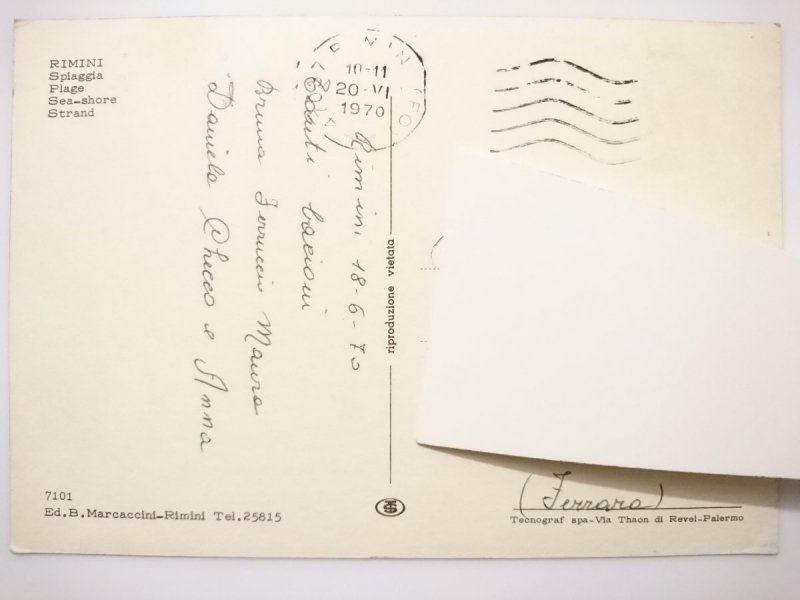 RIMINI
Spiaggia
Plage
Sea-shore
Strand
10-11
20·VI
1970
Rimini 18-6-70
Tanti bacioni
Bruna Ferruccio Mauro
Daniela Checco e Anna
riproduzione vietata
(Ferrara)
7101
Ed.B.Marcaccini-Rimini Tel.25815
Tecnograf spa-Via Thaon di Revel-Palermo